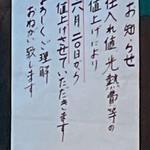 お知らせ
仕入れ値光熱費等の
値上げにより
六月二〇日から
値上げさせていただきます
よろしくご理解
おねがい致します